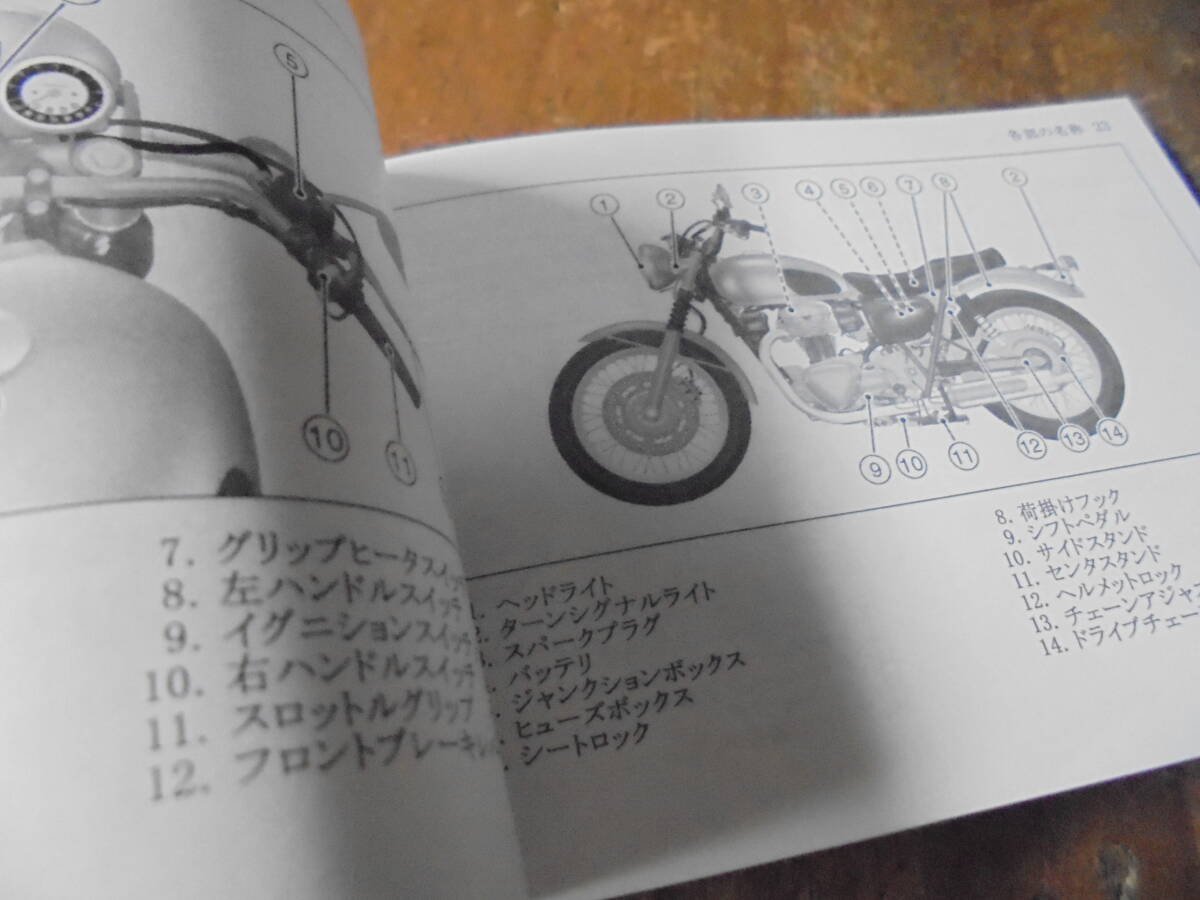 ⑤
⑩
⑪
7. グリップヒータスイッ
8. 左ハンドルスイッチ
9. イグニションスイッチ
10. 右ハンドルスイッチ
11. スロットルグリップ
12. フロントブレーキレ
各部の名称 23
① ② ③ ④ ⑤ ⑥ ⑦ ⑧ ②
⑨ ⑩ ⑪ ⑫ ⑬ ⑭
1. ヘッドライト
2. ターンシグナルライト
3. スパークプラグ
バッテリ
ジャンクションボックス
ヒューズボックス
シートロック
8. 荷掛けフック
9. シフトペダル
10. サイドスタンド
11. センタスタンド
12. ヘルメットロック
13. チェーンアジャス
14. ドライブチェー